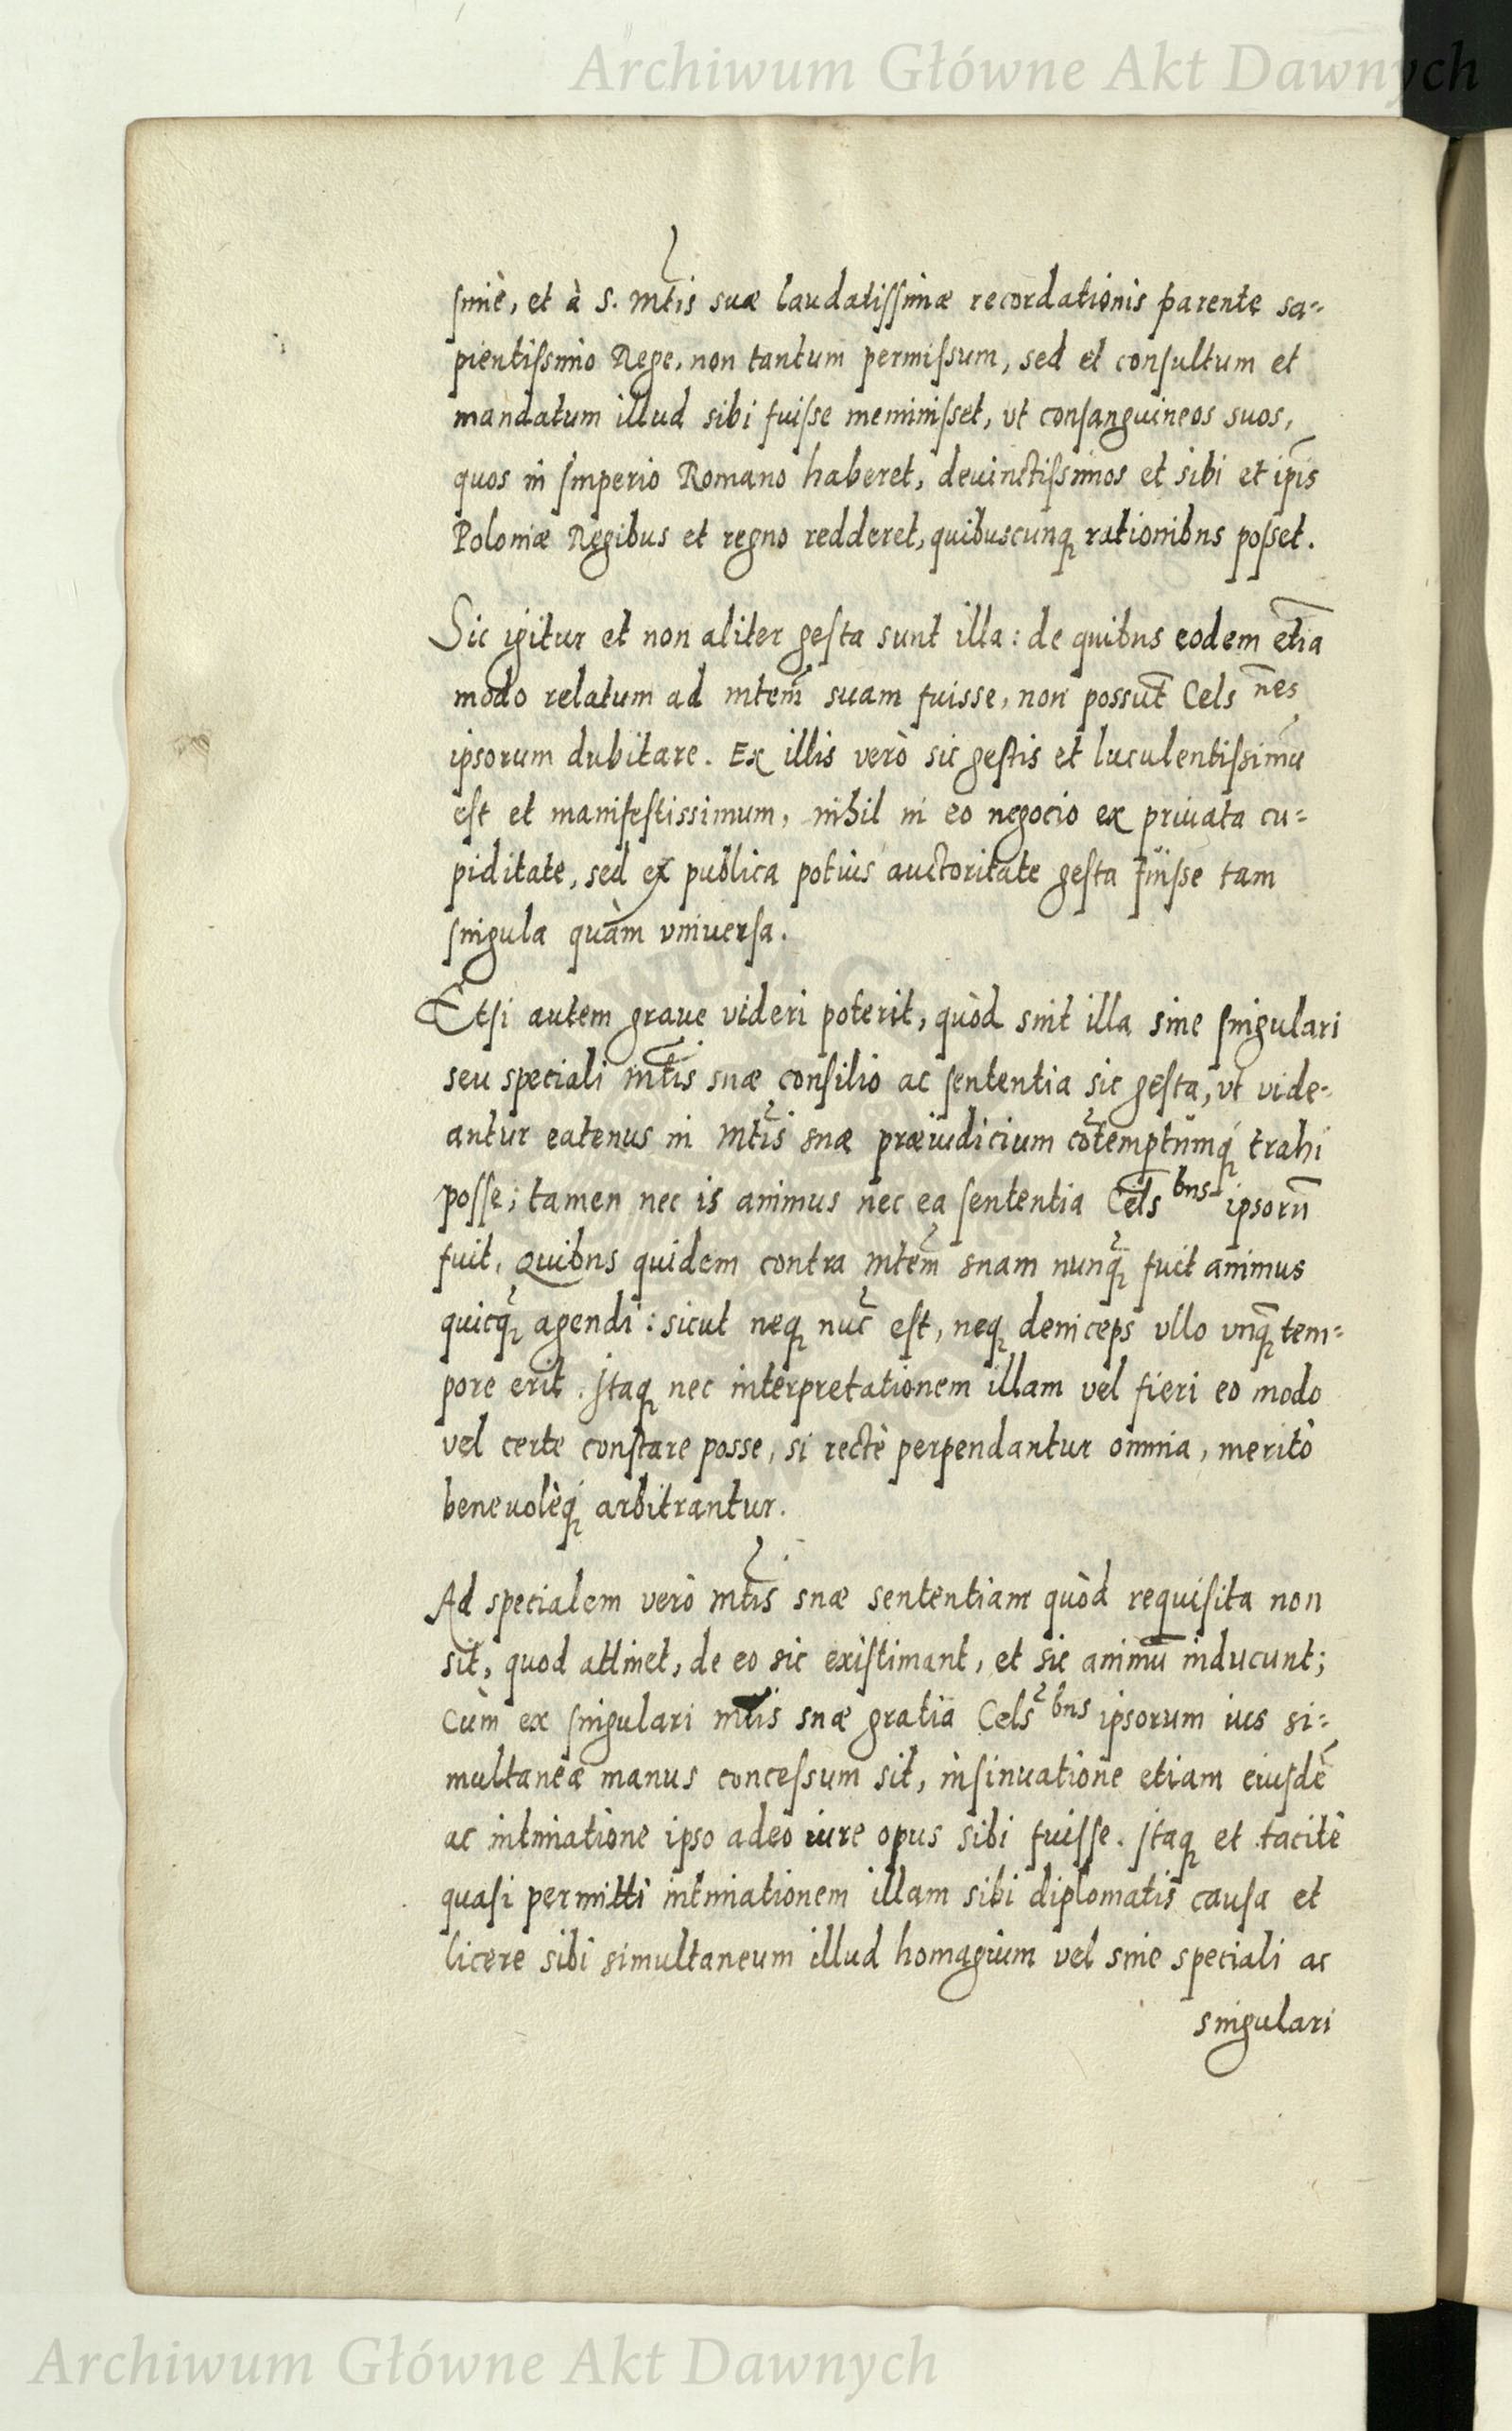 Archiwum Główne Akt Dawnych
simè, et à S. Mtis suæ laudatissimæ recordationis parente sa-
pientissimo Rege, non tantum permissum, sed et consultum et
mandatum illud sibi fuisse meminisset, vt consanguineos suos,
quos in Imperio Romano haberet, deuinctissimos et sibi et ip̄is
Poloniæ Regibus et regno redderet, quibuscunq rationibus posset.
Sic igitur et non aliter gesta sunt illa: de quibus eodem etiā
modo relatum ad Mtem̄ suam fuisse, non possūt Cels nes
ipsorum dubitare. Ex illis verò sic gestis et luculentissimū
est et manifestissimum, nihil in eo negocio ex priuata cu-
piditate, sed ex publica potius auctoritate gesta fuisse tam
singula quàm vniuersa.
Etsi autem graue videri poterit, quòd sint illa sine singulari
seu speciali Mtis suæ consilio ac sententia sic gesta, vt vide-
antur eatenus in Mtis suæ præiudicium cōtemptumq́ trahi
posse; tamen nec is animus nec ea sententia Cels bus ipsorū
fuit, Quibus quidem contra Mtem̄ suam nunq̄ fuit animus
quicq̄ agendi: sicut neq nūc est, neq deinceps vllo vnq̄ tem-
pore erit. Itaq nec interpretationem illam vel fieri eo modo
vel certe constare posse, si rectè perpendantur omnia, meritò
beneuolèq́ arbitrantur.
Ad specialem verò Mtis suæ sententiam quòd requisita non
sit, quod attinet, de eo sic existimant, et sic animū inducunt;
Cùm ex singulari Mtis suæ gratia Cels bus ipsorum ius si-
multaneæ manus concessum sit, insinuatione etiam eiusdē
ac intimatione ipso adeo iure opus sibi fuisse. Itaq et tacitè
quasi permitti intimationem illam sibi diplomatis causa et
licere sibi simultaneum illud homagium vel sine speciali ac
singulari
Archiwum Główne Akt Dawnych